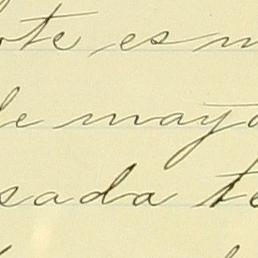 ote es m
de mayo
sada te